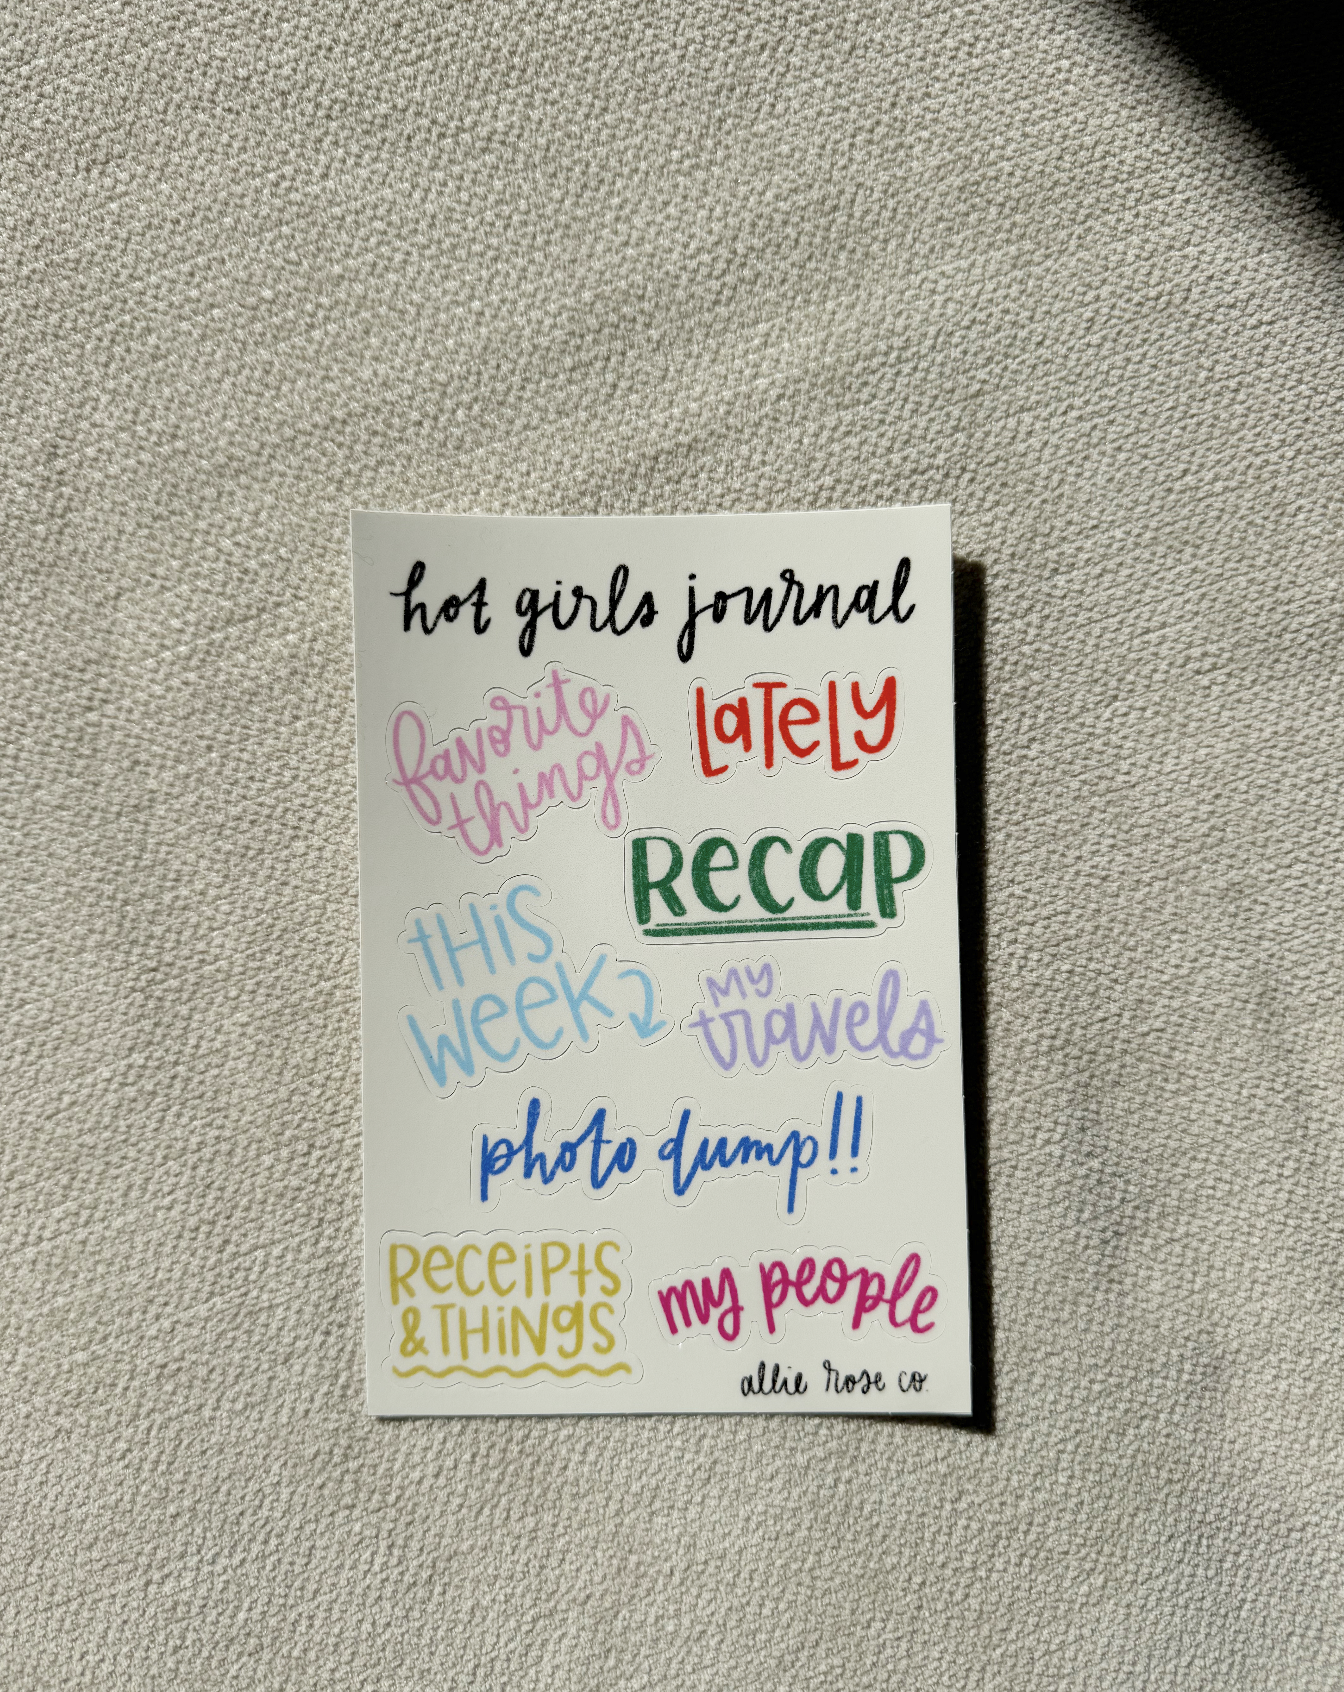 hot girls journal
favorite
things
LaTeLY
Recap
tHis
week
MY
travels
photo dump!!
ReceiPts
& THiNgS
my people
allie rose co.